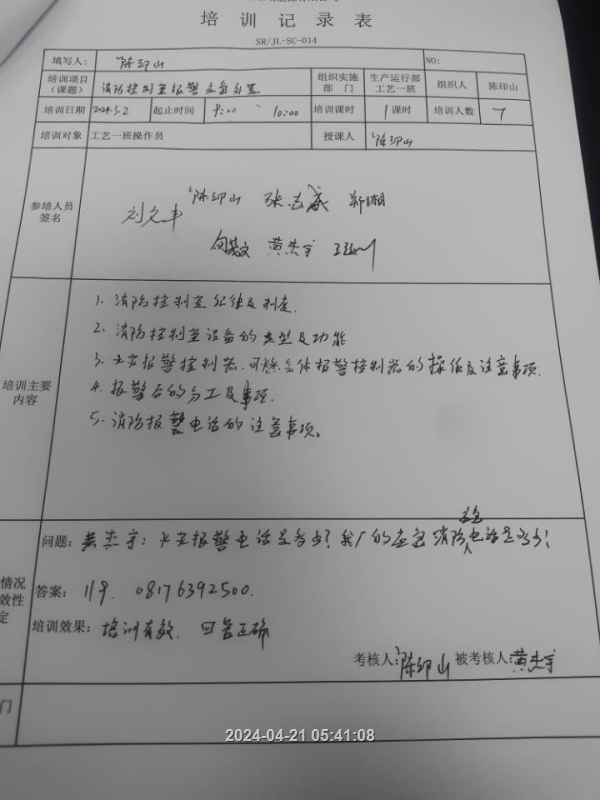 培训记录表
SR/JL-SC-014
填写人： 陈印山 NO:
培训项目（课题） 消防控制室报警 组织实施部门 生产运行部工艺一班 组织人 陈印山
培训日期 2024.3.2 起止时间 9:00 ~ 10:00 培训课时 1课时 培训人数 7
培训对象 工艺一班操作员 授课人 陈印山
参培人员签名
陈印山 郑湘
黄杰宇
培训主要内容
1. 消防控制室纪律及制度.
2. 消防控制室设备的类型及功能
3. 火灾报警控制器、可燃气体报警控制器的操作及注意事项.
4. 报警后的分工及事项.
5. 消防报警电话的注意事项。
问题： 黄杰宇：火灾报警电话是多少？我厂的应急消防电话是多少？
答案： 119. 08176392500.
培训效果： 培训有效. 回答正确
考核人： 陈印山 被考核人： 黄杰宇
2024-04-21 05:41:08